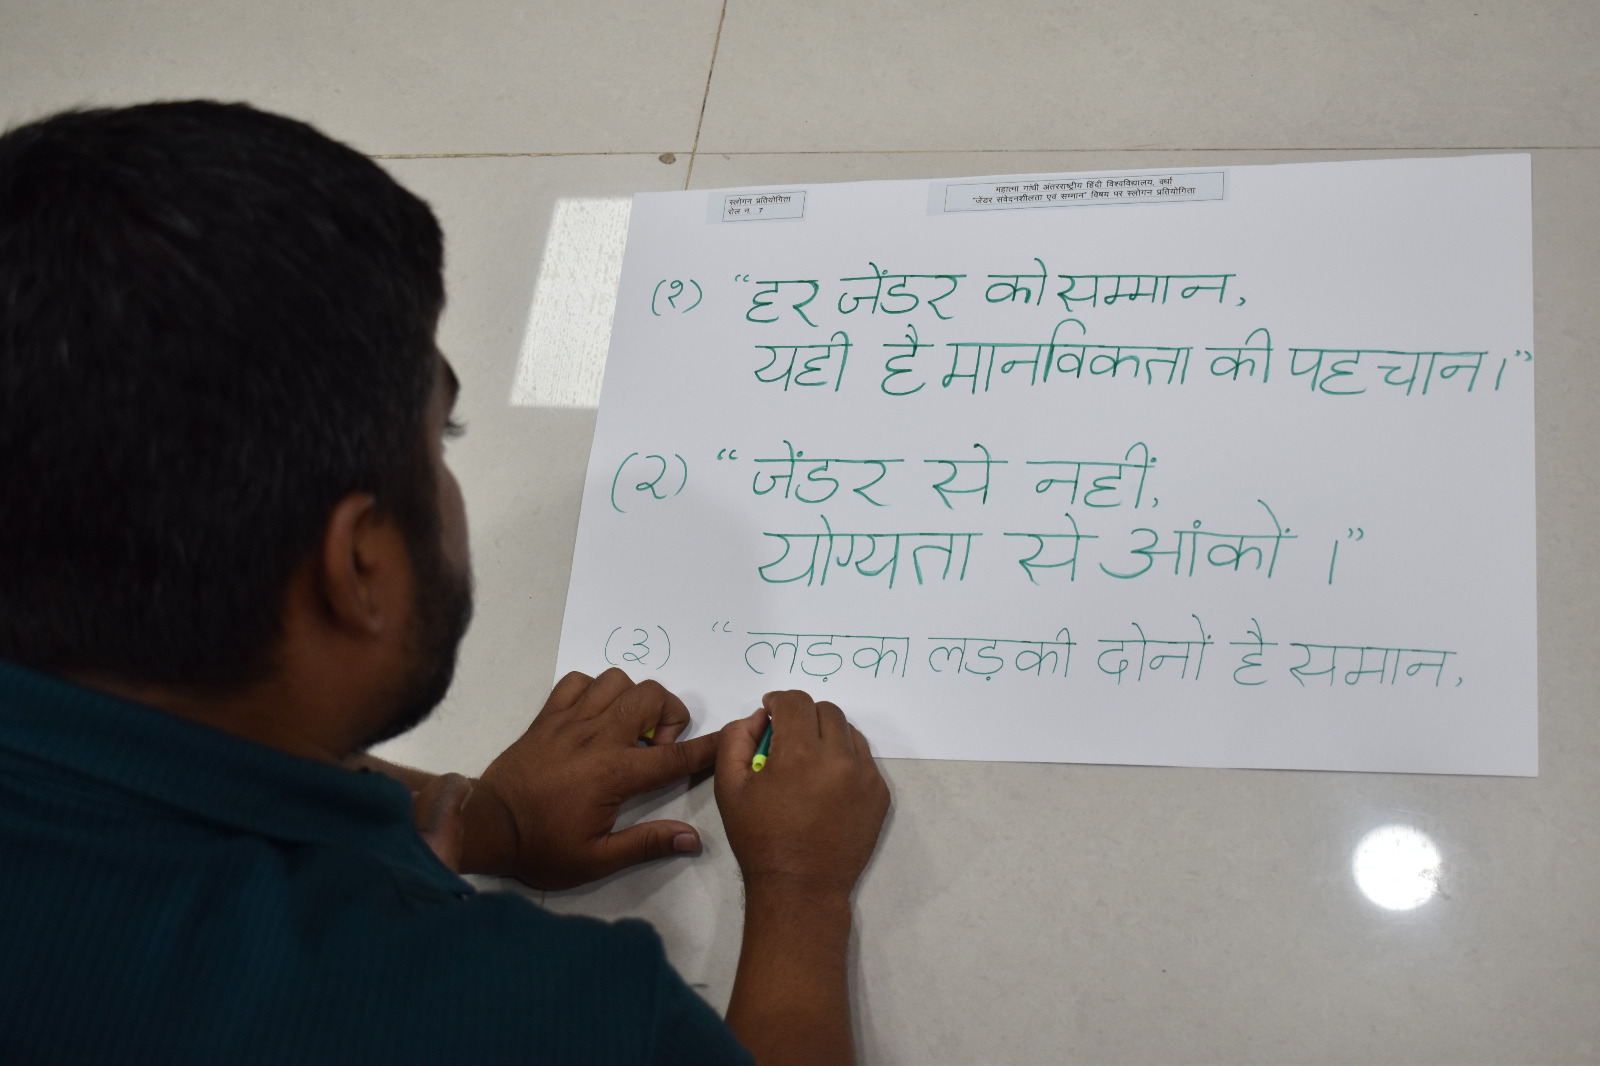 स्लोगन प्रतियोगिता
रोल न. 7
महात्मा गांधी अंतरराष्ट्रीय हिंदी विश्वविद्यालय, वर्धा
"जेंडर संवेदनशीलता एवं सम्मान" विषय पर स्लोगन प्रतियोगिता
(१) “हर जेंडर को सम्मान,
यही है मानविकता की पहचान।”
(२) “जेंडर से नहीं,
योग्यता से आंकों ।”
(३) “लड़का लड़की दोनों है समान,